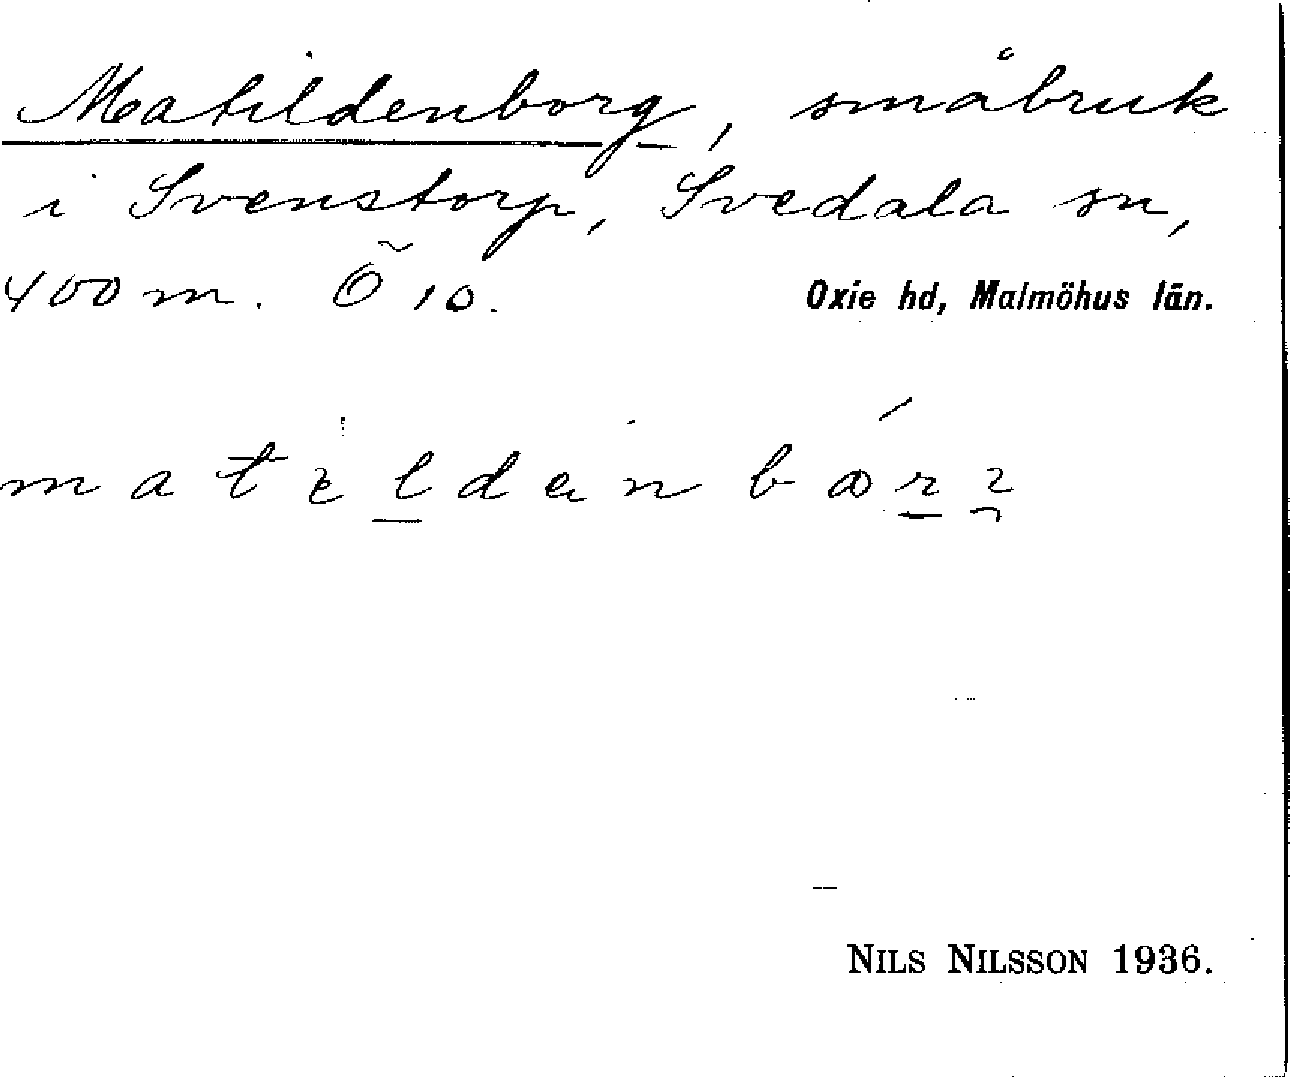 Matildenborg, småbruk
i Svenstorp, Svedala sn,
400 m. Ö 10.
Oxie hd, Malmöhus län.
NILS NILSSON 1936.